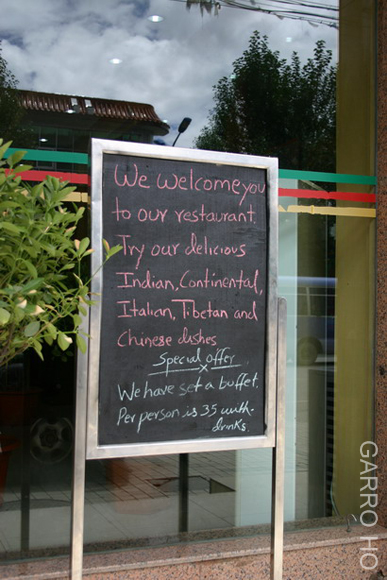 We welcome you
to our restaurant.
Try our delicious
Indian, Continental,
Italian, Tibetan and
Chinese dishes
Special offer
We have set a buffet.
Per person is 35 with-
drinks.
GARRO HO